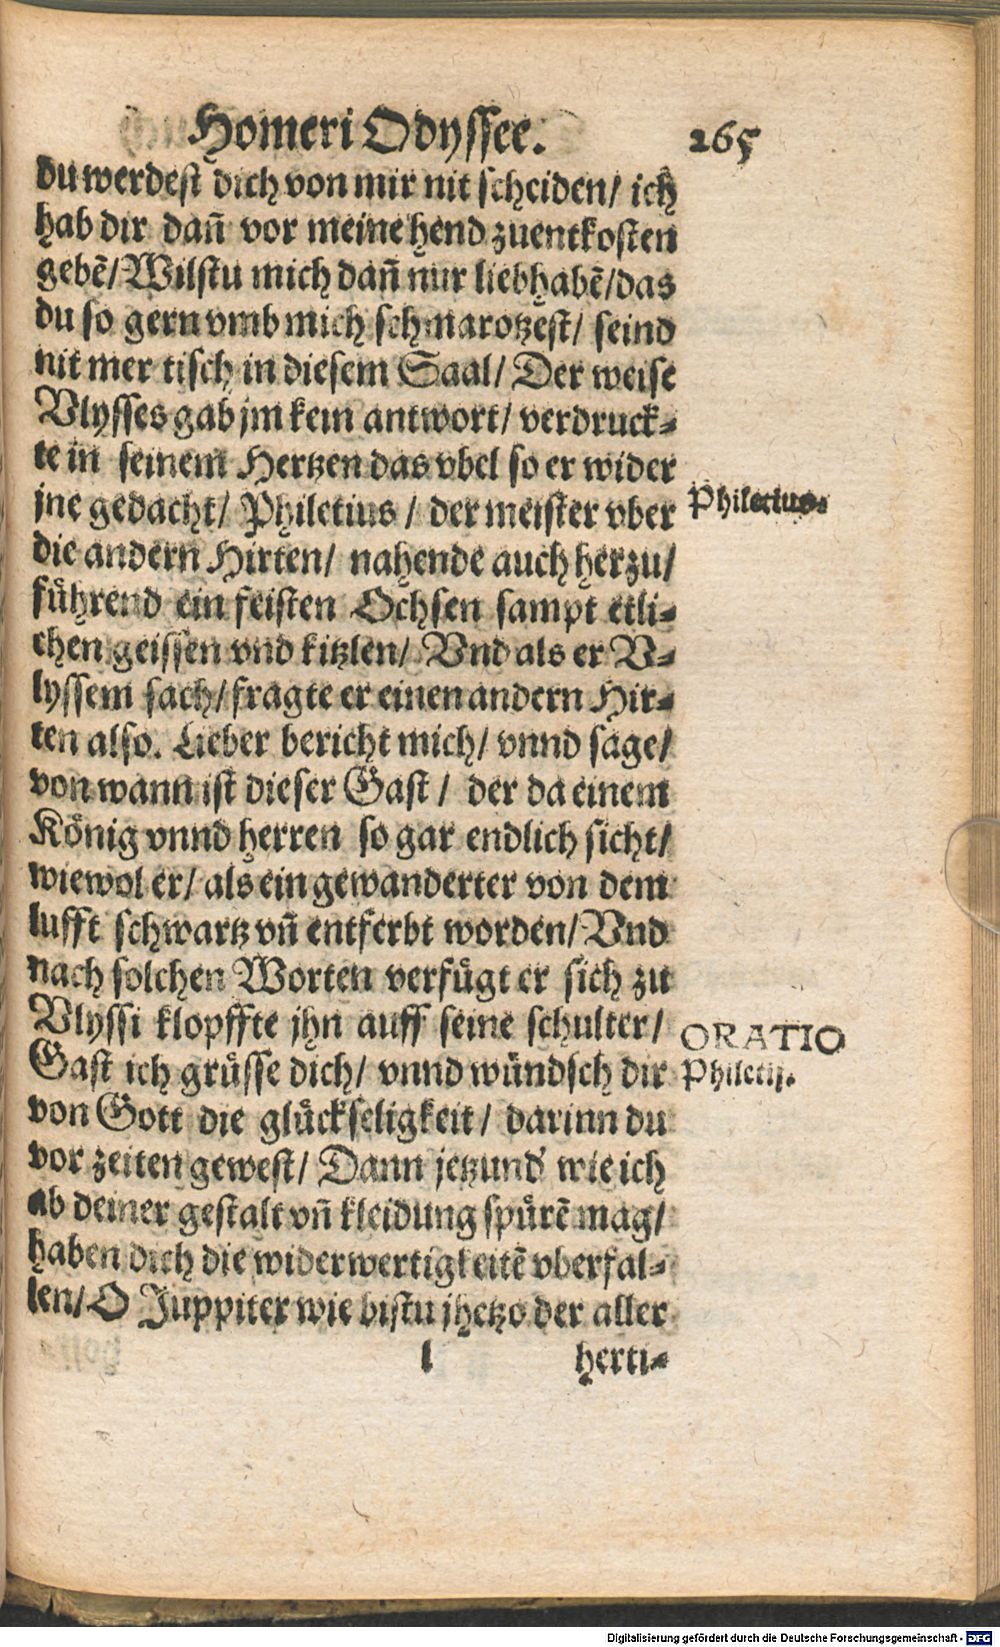 Homeri Odyssee. 265
du werdest dich von mir nit scheiden/ ich
hab dir dañ vor meine hend zuentkosten
gebẽ/ Wilstu mich dañ nur liebhabẽ/ das
du so gern vmb mich schmarotzest/ seind
nit mer tisch in diesem Saal/ Der weise
Vlysses gab jm kein antwort/ verdruck-
te in seinem Hertzen das vbel so er wider
jne gedacht/ Philetius / der meister vber
Philetius.
die andern Hirten/ nahende auch herzu/
fuͤhrend ein feisten Ochsen sampt etli-
chen geissen vnd kitzlen/ Vnd als er V-
lyssem sach/ fragte er einen andern Hir-
ten also. Lieber bericht mich/ vnnd sage/
von wann ist dieser Gast / der da einem
Koͤnig vnnd herren so gar endlich sicht/
wiewol er/ als ein gewanderter von dem
lufft schwartz vñ entferbt worden/ Vnd
nach solchen Worten verfuͤgt er sich zu
Vlyssi klopffte jhn auff seine schulter/
ORATIO
Gast ich gruͤsse dich/ vnnd wuͤndsch dir
Philetij.
von Gott die gluͤckseligkeit / darinn du
vor zeiten gewest/ Dann jetzund wie ich
ab deiner gestalt vñ kleidung spuͤrẽ mag/
haben dich die widerwertigkeitẽ vberfal-
len/ O Juppiter wie bistu jhetzo der aller
l herti-
Digitalisierung gefördert durch die Deutsche Forschungsgemeinschaft - DFG